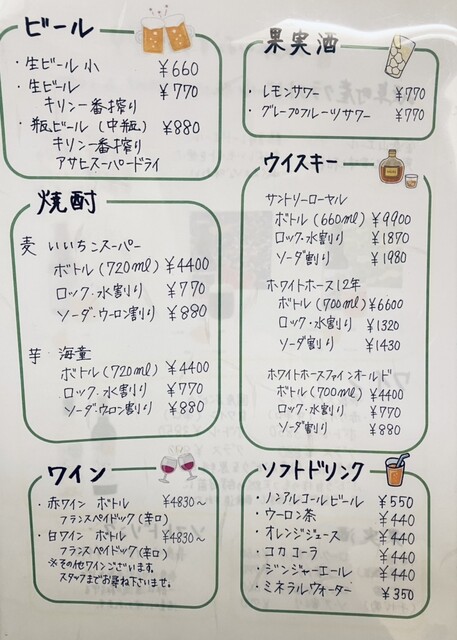 ビール
・生ビール 小 ¥660
・生ビール ¥770
キリン一番搾り
・瓶ビール（中瓶） ¥880
キリン一番搾り
アサヒスーパードライ
果実酒
・レモンサワー ¥770
・グレープフルーツサワー ¥770
焼酎
麦 いいちこスーパー
ボトル（720ml） ¥4400
ロック・水割り ¥770
ソーダ・ウーロン割り ¥880
芋・海童
ボトル（720ml） ¥4400
ロック・水割り ¥770
ソーダ・ウロン割り ¥880
ウイスキー
サントリーローヤル
ボトル（660ml） ¥9900
ロック・水割り ¥1870
ソーダ割り ¥1980
ホワイトホース12年
ボトル（700ml） ¥6600
ロック・水割り ¥1320
ソーダ割り ¥1430
ホワイトホースファインオールド
ボトル（700ml） ¥4400
ロック・水割り ¥770
ソーダ割り ¥880
ワイン
・赤ワイン ボトル ¥4830〜
フランスペイドック（辛口）
・白ワイン ボトル ¥4830〜
フランスペイドック（辛口）
※その他ワインございます。
スタッフまでお尋ね下さいませ。
ソフトドリンク
・ノンアルコールビール ¥550
・ウーロン茶 ¥440
・オレンジジュース ¥440
・コカコーラ ¥440
・ジンジャーエール ¥440
・ミネラルウォーター ¥350